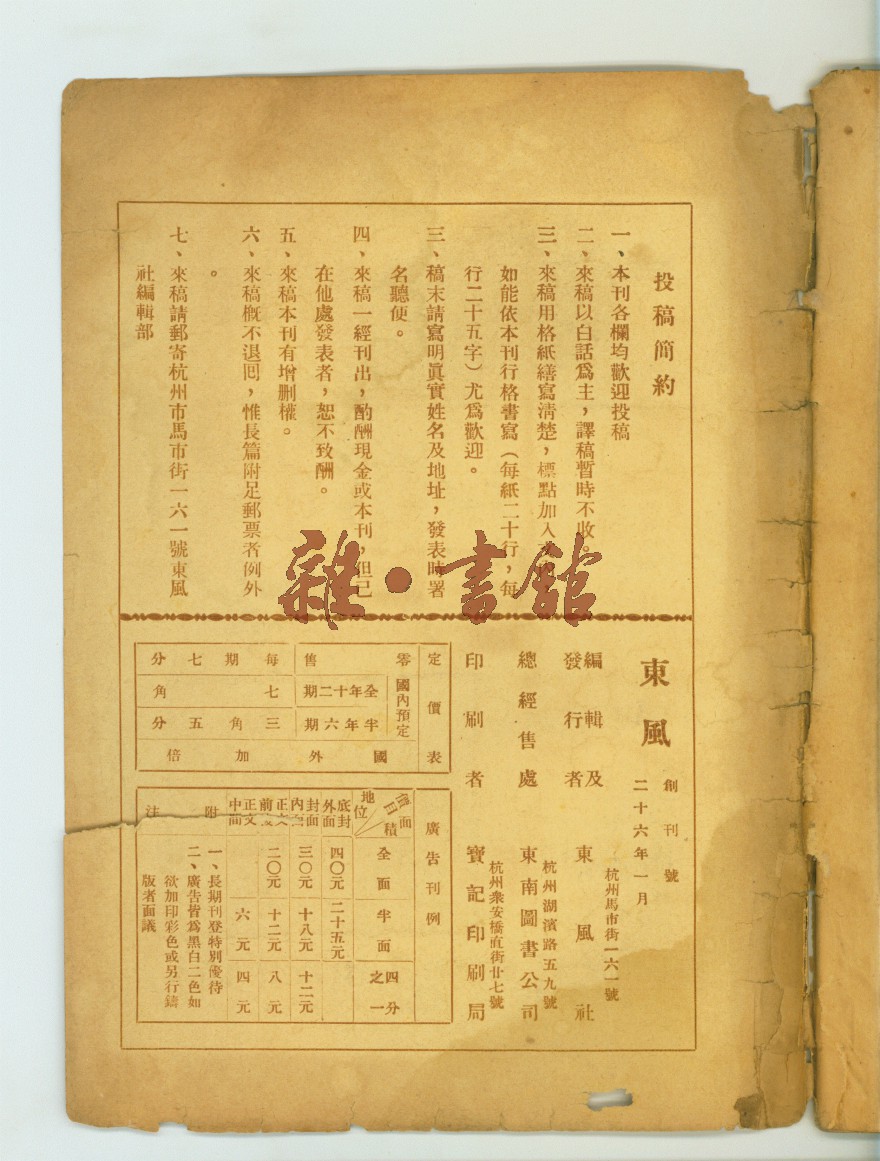 投稿簡約
一、本刊各欄均歡迎投稿
二、來稿以白話爲主，譯稿暫時不收。
三、來稿用格紙繕寫清楚，標點加入
如能依本刊行格書寫（每紙二十行，每
行二十五字）尤爲歡迎。
三、稿末請寫明眞實姓名及地址，發表時署
名聽便。
四、來稿一經刊出，酌酬現金或本刊，但已
在他處發表者，恕不致酬。
五、來稿本刊有增删權。
六、來稿概不退囘，惟長篇附足郵票者例外
。
七、來稿請郵寄杭州市馬市街一六一號東風
社編輯部
雜·書館
東風
創刊號
二十六年一月
編輯及
發行者
東風社
杭州馬市街一六一號
總經售處
東南圖書公司
杭州湖濱路五九號
印刷者
寶記印刷局
杭州衆安橋直街廿七號
定價表
零售
每期七分
國內預定
全年十二期
七角
半年六期
三角五分
國外加倍
廣告刊例
價目
面積
地位
全面
半面
四分之一
底封外面
四〇元
二十五元
封面內
三〇元
十八元
十二元
正文前
二〇元
十二元
八元
正文中間
六元
四元
附注
一、長期刊登特別優待
二、廣告皆爲黑白二色如
欲加印彩色或另行鑄
版者面議